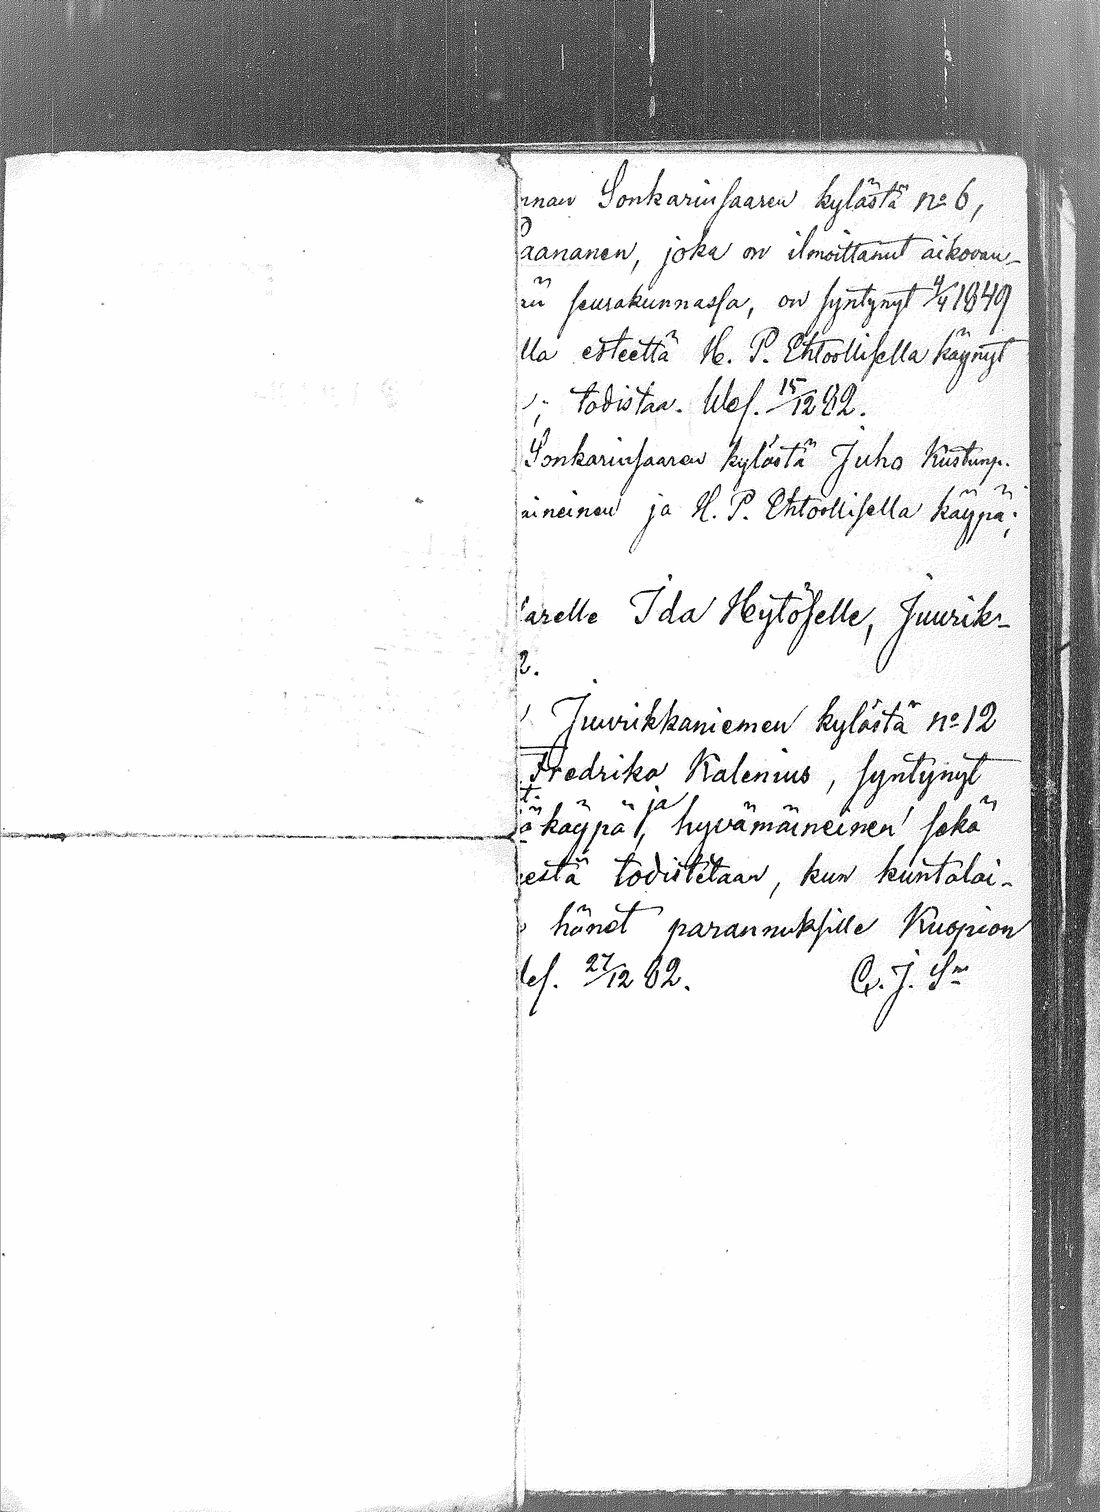 nnan Sonkarinsaaren kylästä no 6,
aananen, joka on ilmoittanut aikovan-
seurakunnassa, on syntynyt 4/4 1849
lla esteettä H. P. Ehtoollisella käynyt
todistaa. Wef. 15/12 82.
Sonkarinsaaren kylästä Juho Kustunp.
aineinen ja H. P. Ehtoollisella käypä;
arelle Ida Heytöselle, Juurik-
2.
Juurikkaniemen kylästä no 12
Fredrika Kalenius, syntynyt
ä käypä, ja hyvämäineinen sekä
estä todistetaan, kun kuntalai-
hänet parannuksille Kuopion
ef. 27/12 82. C. J. Sm